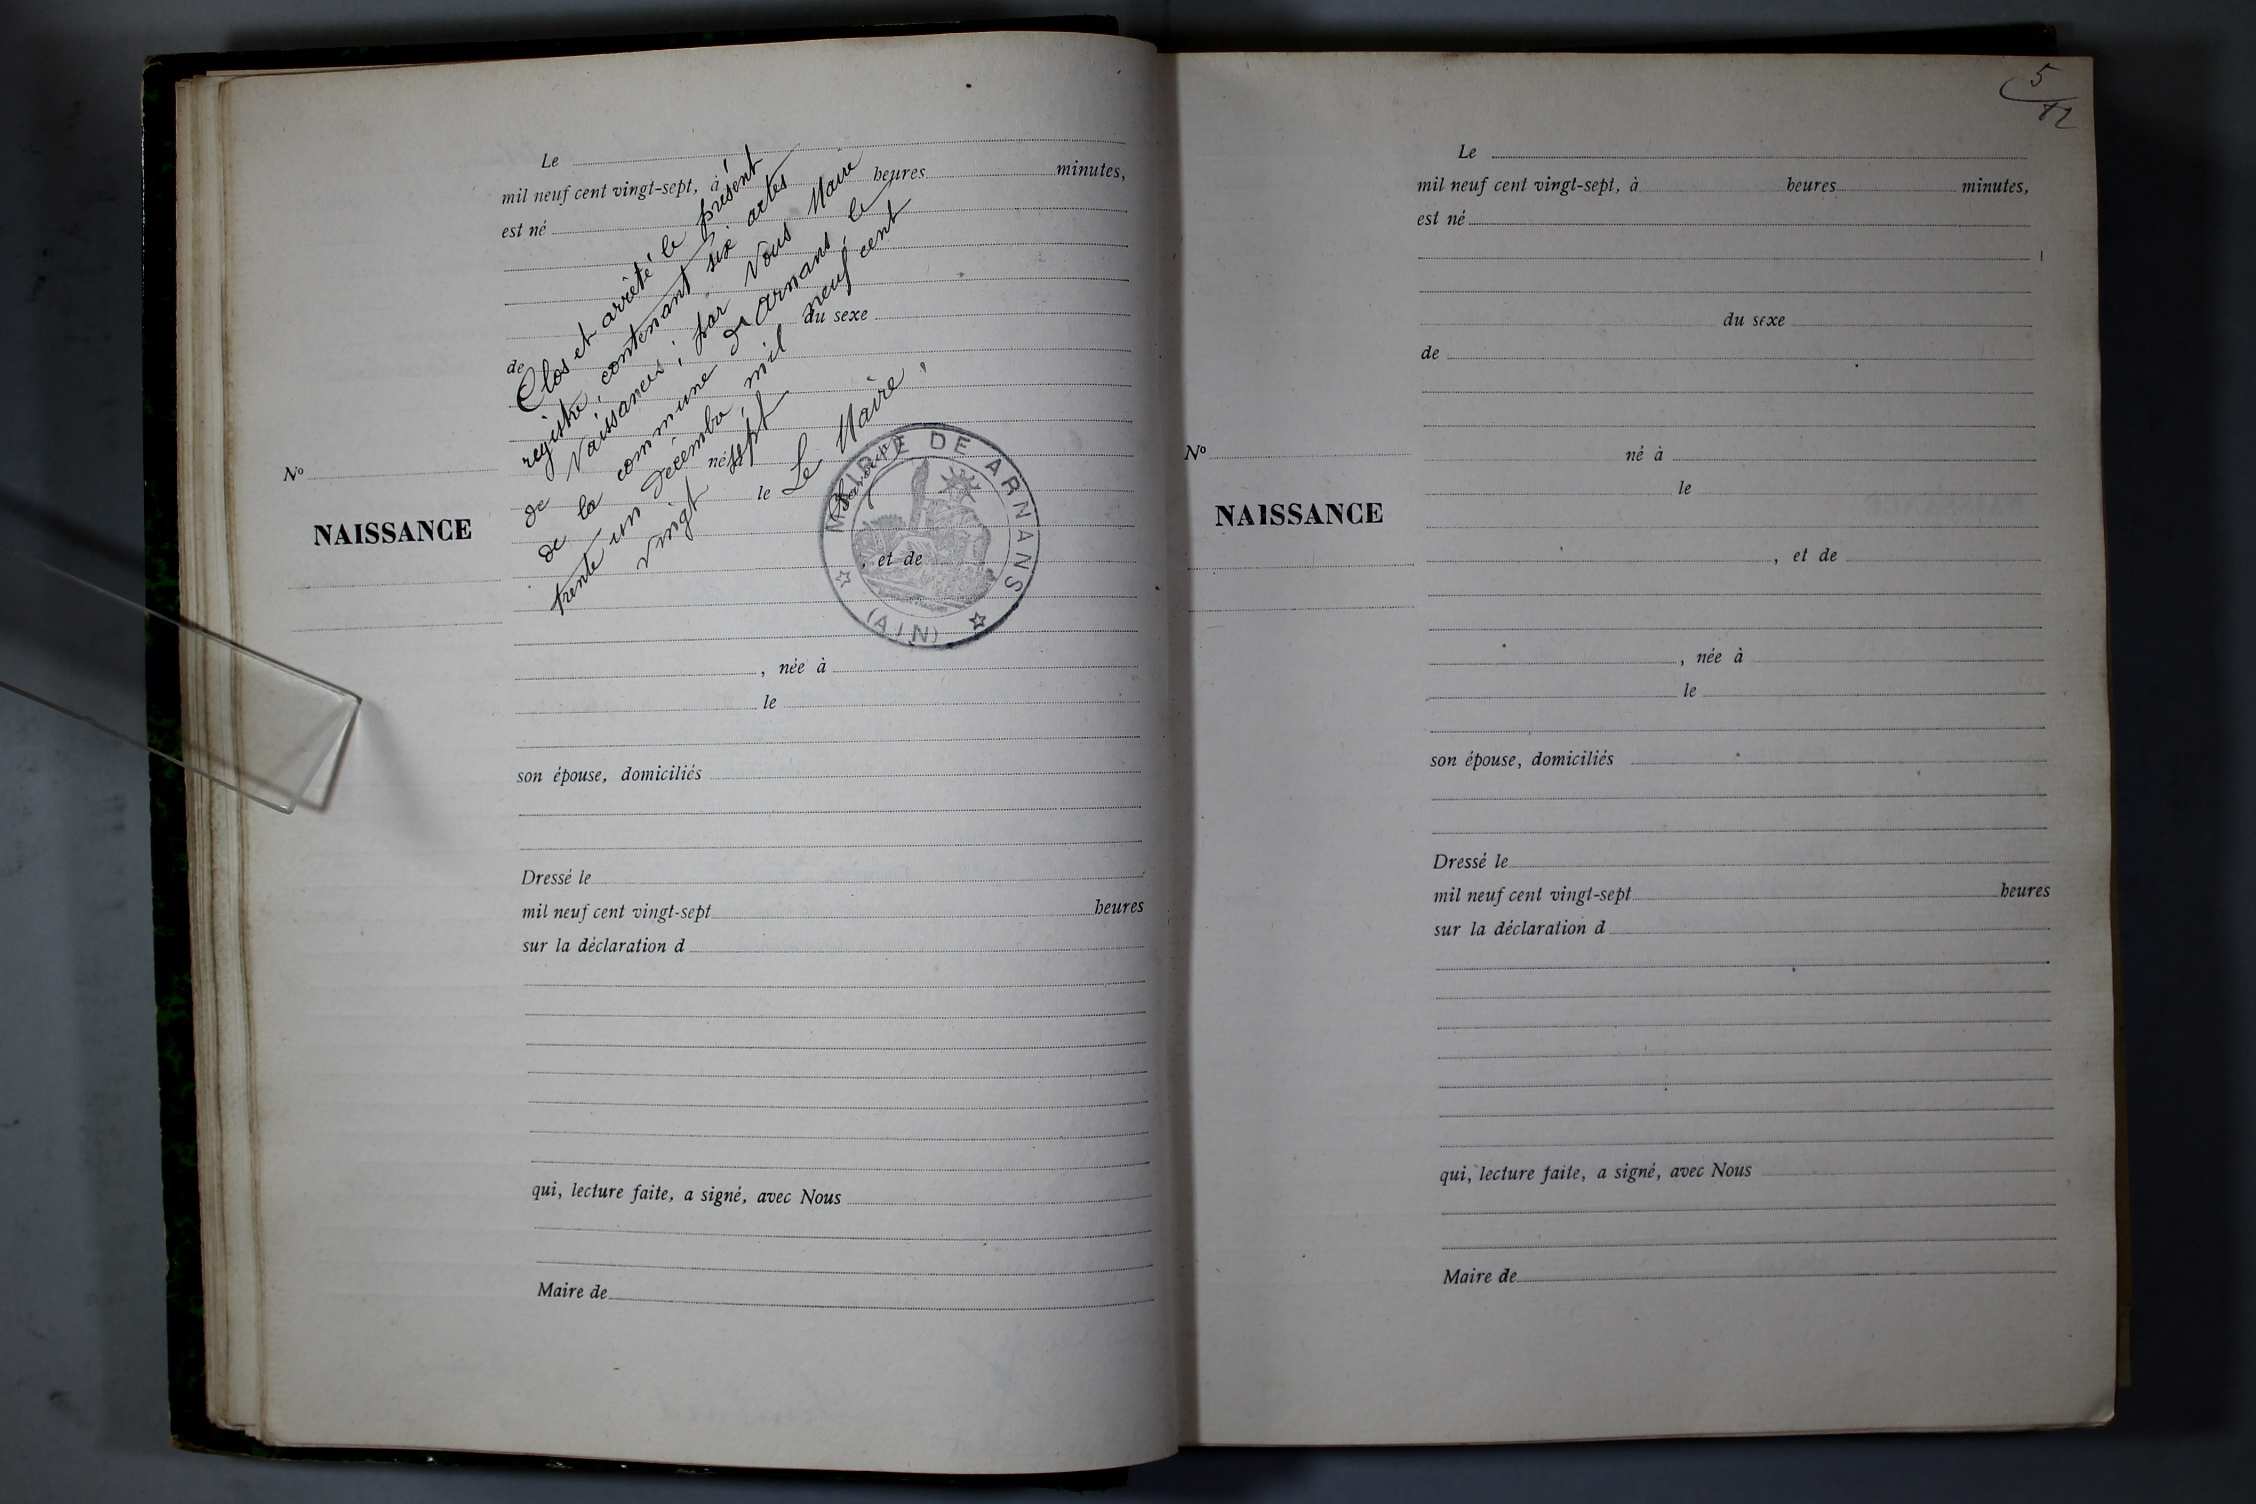 Le
mil neuf cent vingt-sept, à heures minutes,
est né
du sexe
de
né à
le
, et de
, née à
le
son épouse, domiciliés
Dressé le
mil neuf cent vingt-sept heures
sur la déclaration d
qui, lecture faite, a signé, avec Nous
Maire de
N°
NAISSANCE
Clos et arrêté le présent
registre, contenant six actes
de Naissances, par Nous Maire
de la commune de Arnans, le
trente un décembre, mil neuf cent
vingt sept
Le Maire,
MAIRIE DE ARNANS
(AIN)
5
12
Le
mil neuf cent vingt-sept, à heures minutes,
est né
du sexe
de
né à
le
, et de
, née à
le
son épouse, domiciliés
Dressé le
mil neuf cent vingt-sept heures
sur la déclaration d
qui, lecture faite, a signé, avec Nous
Maire de
N°
NAISSANCE